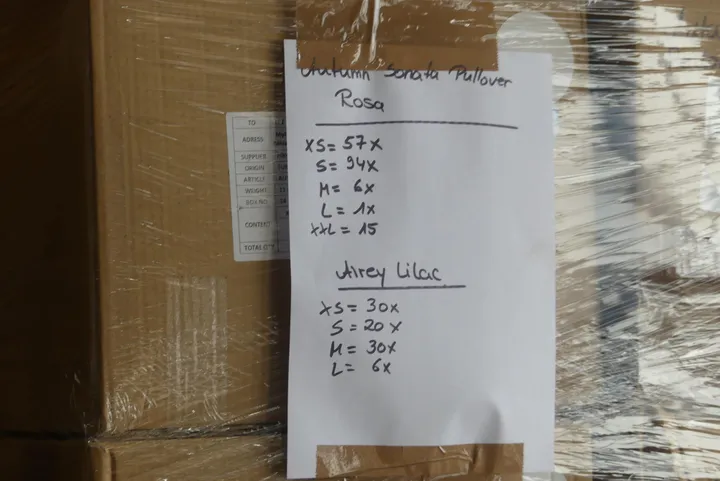 Autumn Sonata Pullover
Rosa
XS = 57x
S = 94x
M = 6x
L = 1x
XXL = 15
Airey Lilac
XS = 30x
S = 20x
M = 30x
L = 6x
TO
ADRESS
SUPPLIER
ORIGIN
ARTICLE
WEIGHT
BOX NO
CONTENT
TOTAL QTY